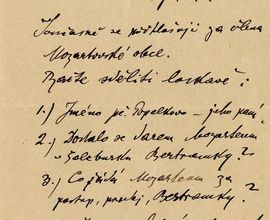 Současně se přihlašuji za člena
Mozartovské obce.
Račte sděliti laskavě:
1.) Jméno pí Popelkové – jako paní.
2.) Dostalo se Varem Mozarteum
v Salzburku Bertramky?
3.) Co Mozarteum za
postup, prodej, Bertramky?